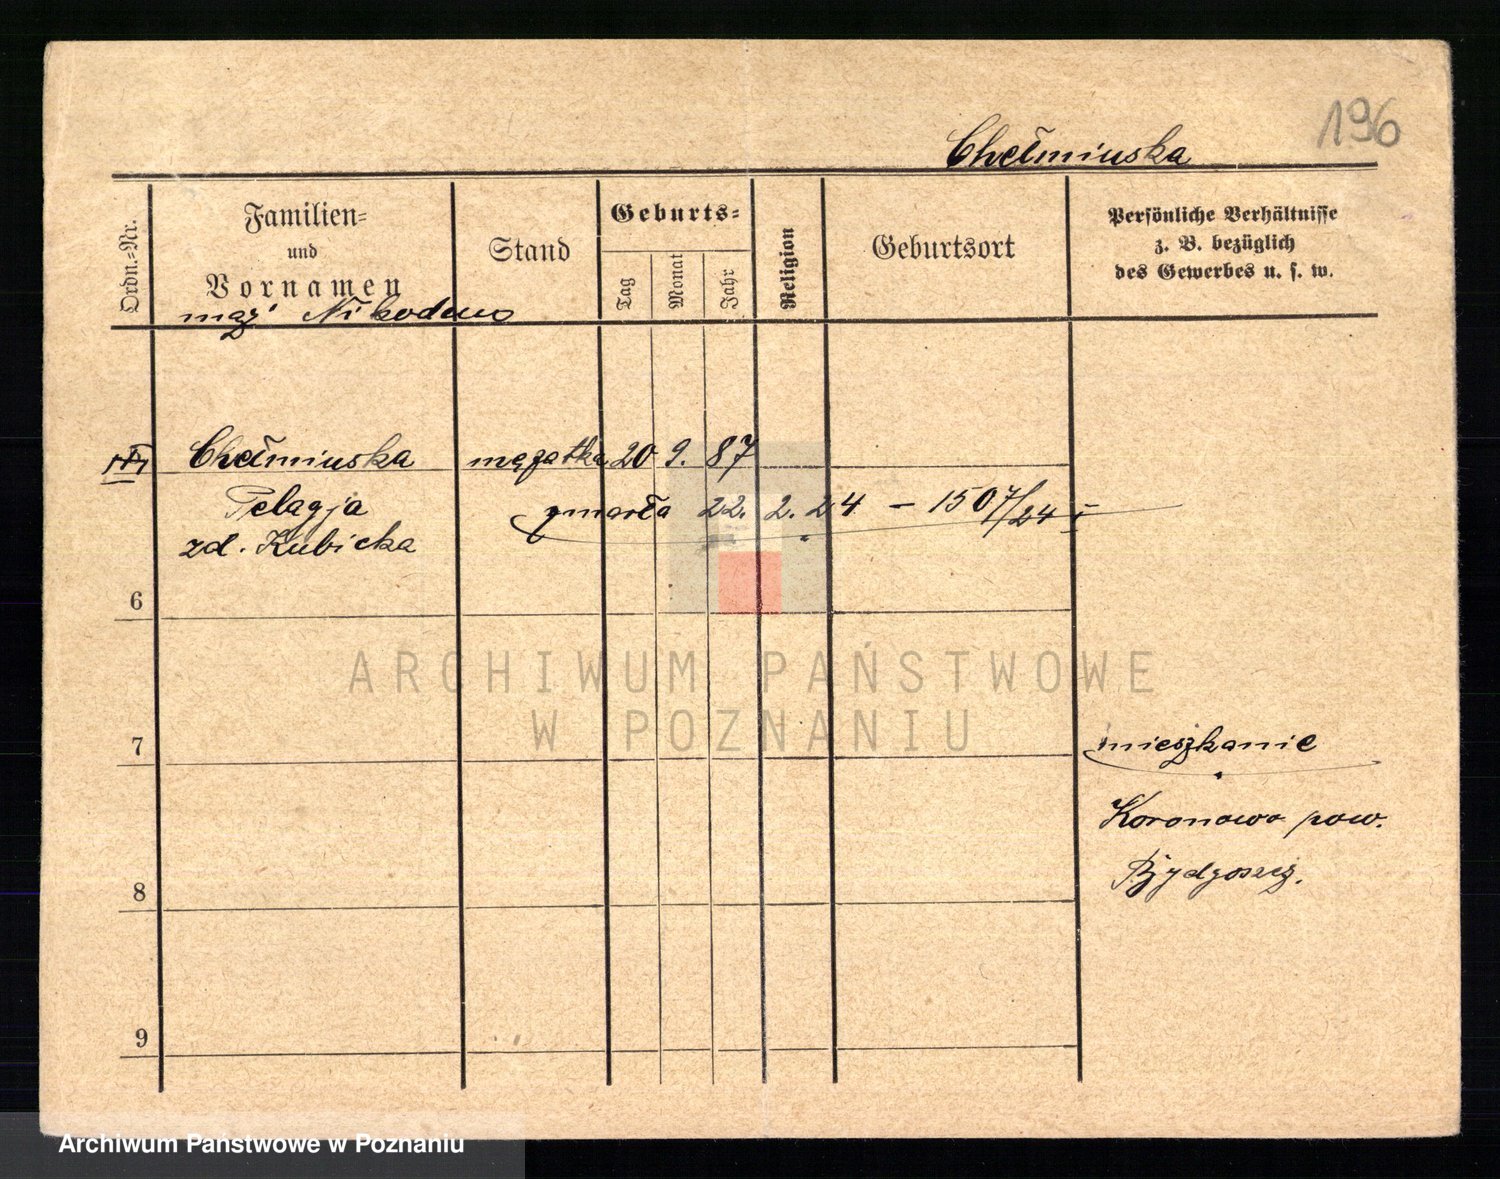 196
Chełmińska
Ordn.-Nr.
Familien-
und
Vornamen
Stand
Geburts-
Tag
Monat
Jahr
Religion
Geburtsort
Persönliche Verhältnisse
z. B. bezüglich
des Gewerbes u. s. w.
mąż Nikodem
Chełmińska mężatka 20 9. 87
Pelagja zmarła 22. 2. 24 – 1507/24
zd. Kubicka
6
ARCHIWUM PAŃSTWOWE
W POZNANIU
7
mieszkanie
Koronowo pow.
8
Bydgoszcz.
9
Archiwum Państwowe w Poznaniu